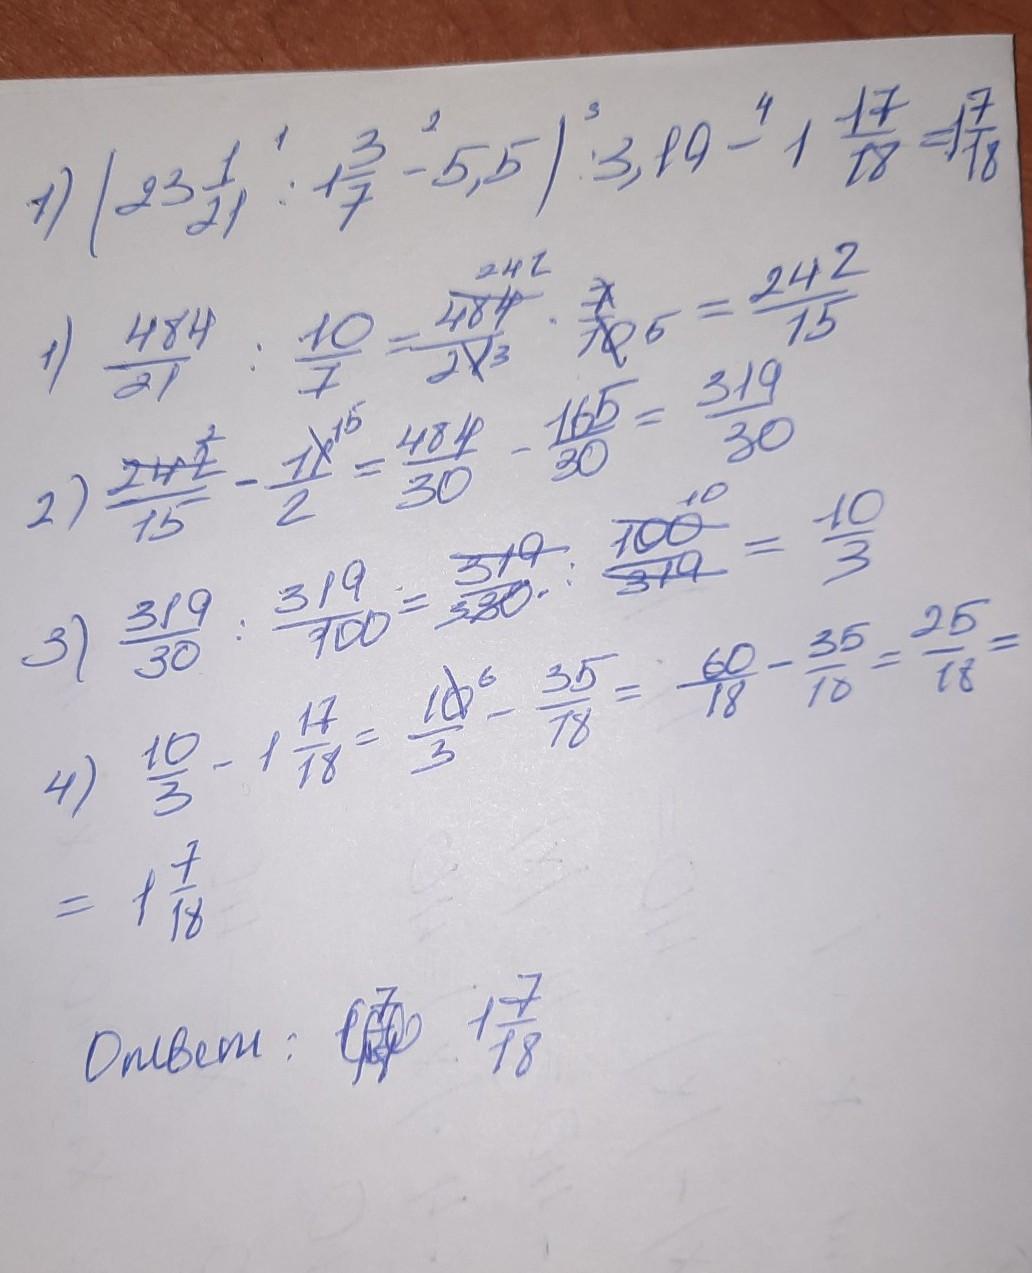 1) (23 1/21 : 1 3/7 - 5,5) : 3,19 - 1 17/18 = 1 7/18
1) 484/21 : 10/7 = 484/21 · 7/10 = 242/15
2) 242/15 - 11/2 = 484/30 - 165/30 = 319/30
3) 319/30 : 319/100 = 319/330. : 100/319 = 10/3
4) 10/3 - 1 17/18 = 10/3 - 35/18 = 60/18 - 35/18 = 25/18 =
= 1 7/18
Ответ: 1 7/18